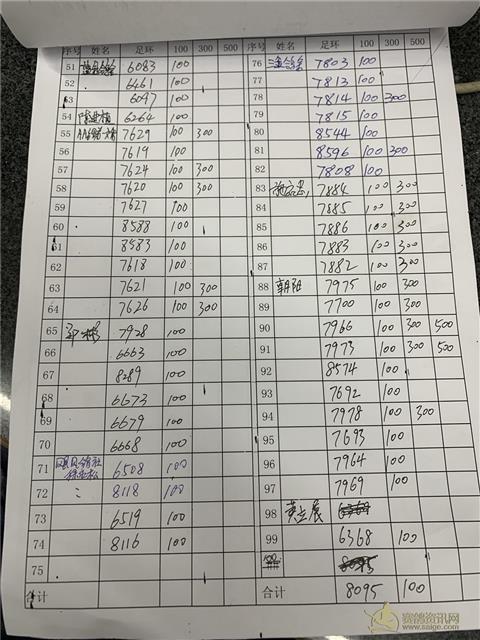 序号 姓名 足环 100 300 500
51 6083 100
52 6461 100
53 6097 100
54 6264 100
55 7629 100 300
56 7619 100
57 7624 100 300
58 7620 100 300
59 7627 100
60 8588 100
61 8583 100
62 7618 100
63 7621 100 300
64 7626 100 300
65 7928 100
66 6663 100
67 8289 100
68 6673 100
69 6679 100
70 6668 100
71 6508 100
72 8118 100
73 6519 100
74 8116 100
75
合计
序号 姓名 足环 100 300 500
76 7803 100
77 7813 100
78 7814 100 300
79 7815 100
80 8544 100
81 8596 100 300
82 7808 100
83 7884 100 300
84 7885 100 300
85 7886 100 300
86 7883 100 300
87 7882 100 300
88 朝阳 7975 100 300
89 7700 100 300
90 7966 100 300 500
91 7973 100 300 500
92 8574 100
93 7692 100
94 7978 100 300
95 7693 100
96 7964 100
97 7969 100
98 黄立展
99 6368 100
合计 8095 100
赛鸽资讯网
www.saige.com